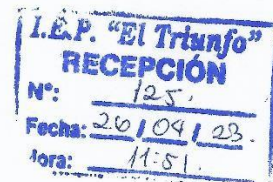 I.E.P. "El Triunfo"
RECEPCIÓN
N°: 125.
Fecha: 26 / 04 / 23.
Hora: 11:51.